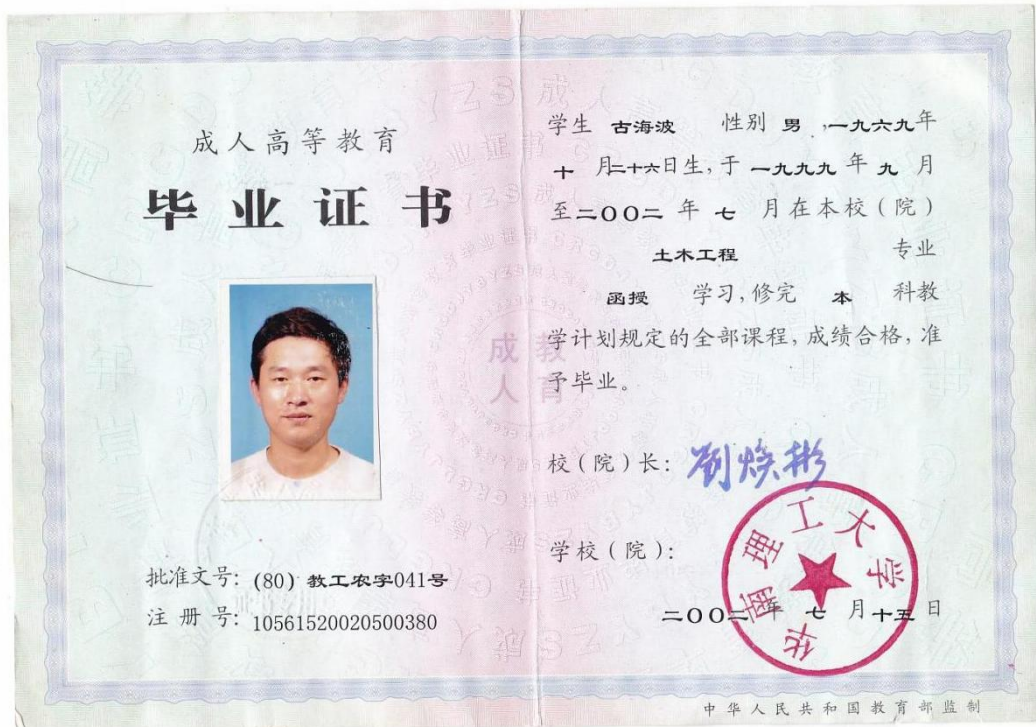 成人高等教育
毕业证书
批准文号: (80) 教工农字041号
注册号: 10561520020500380
学生 古海波 性别 男 ,一九六九年
十 月二十六日生, 于 一九九九 年 九 月
至二〇〇二 年 七 月在本校(院)
土木工程 专业
函授 学习, 修完 本 科教
学计划规定的全部课程, 成绩合格, 准
予毕业。
校(院)长: 刘焕彬
学校(院):
华南理工大学
二〇〇二年 七 月十五日
成教
人育
中华人民共和国教育部监制